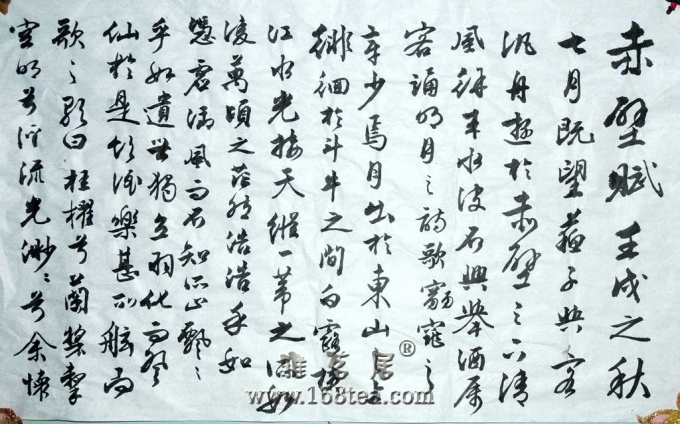 赤壁賦 壬戌之秋
七月既望蘇子與客
汎舟遊於赤壁之下清
風徐来水波不興舉酒属
客誦明月之詩歌窈窕之
章少焉月出於東山之上
徘徊於斗牛之間白露橫
江水光接天縱一葦之所如
凌萬頃之茫然浩浩乎如
憑虛御風而不知所止飄〻
乎如遺世獨立羽化而登
仙於是飲酒樂甚扣舷而
歌之歌曰桂櫂兮蘭槳擊
空明兮泝流光渺〻兮余懷
雅茗居®
www.168tea.com